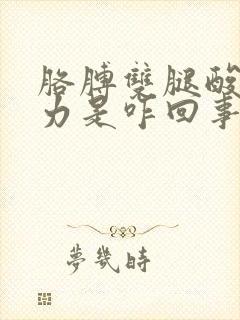 胳膊雙腿酸
力是咋回事
夢幾時